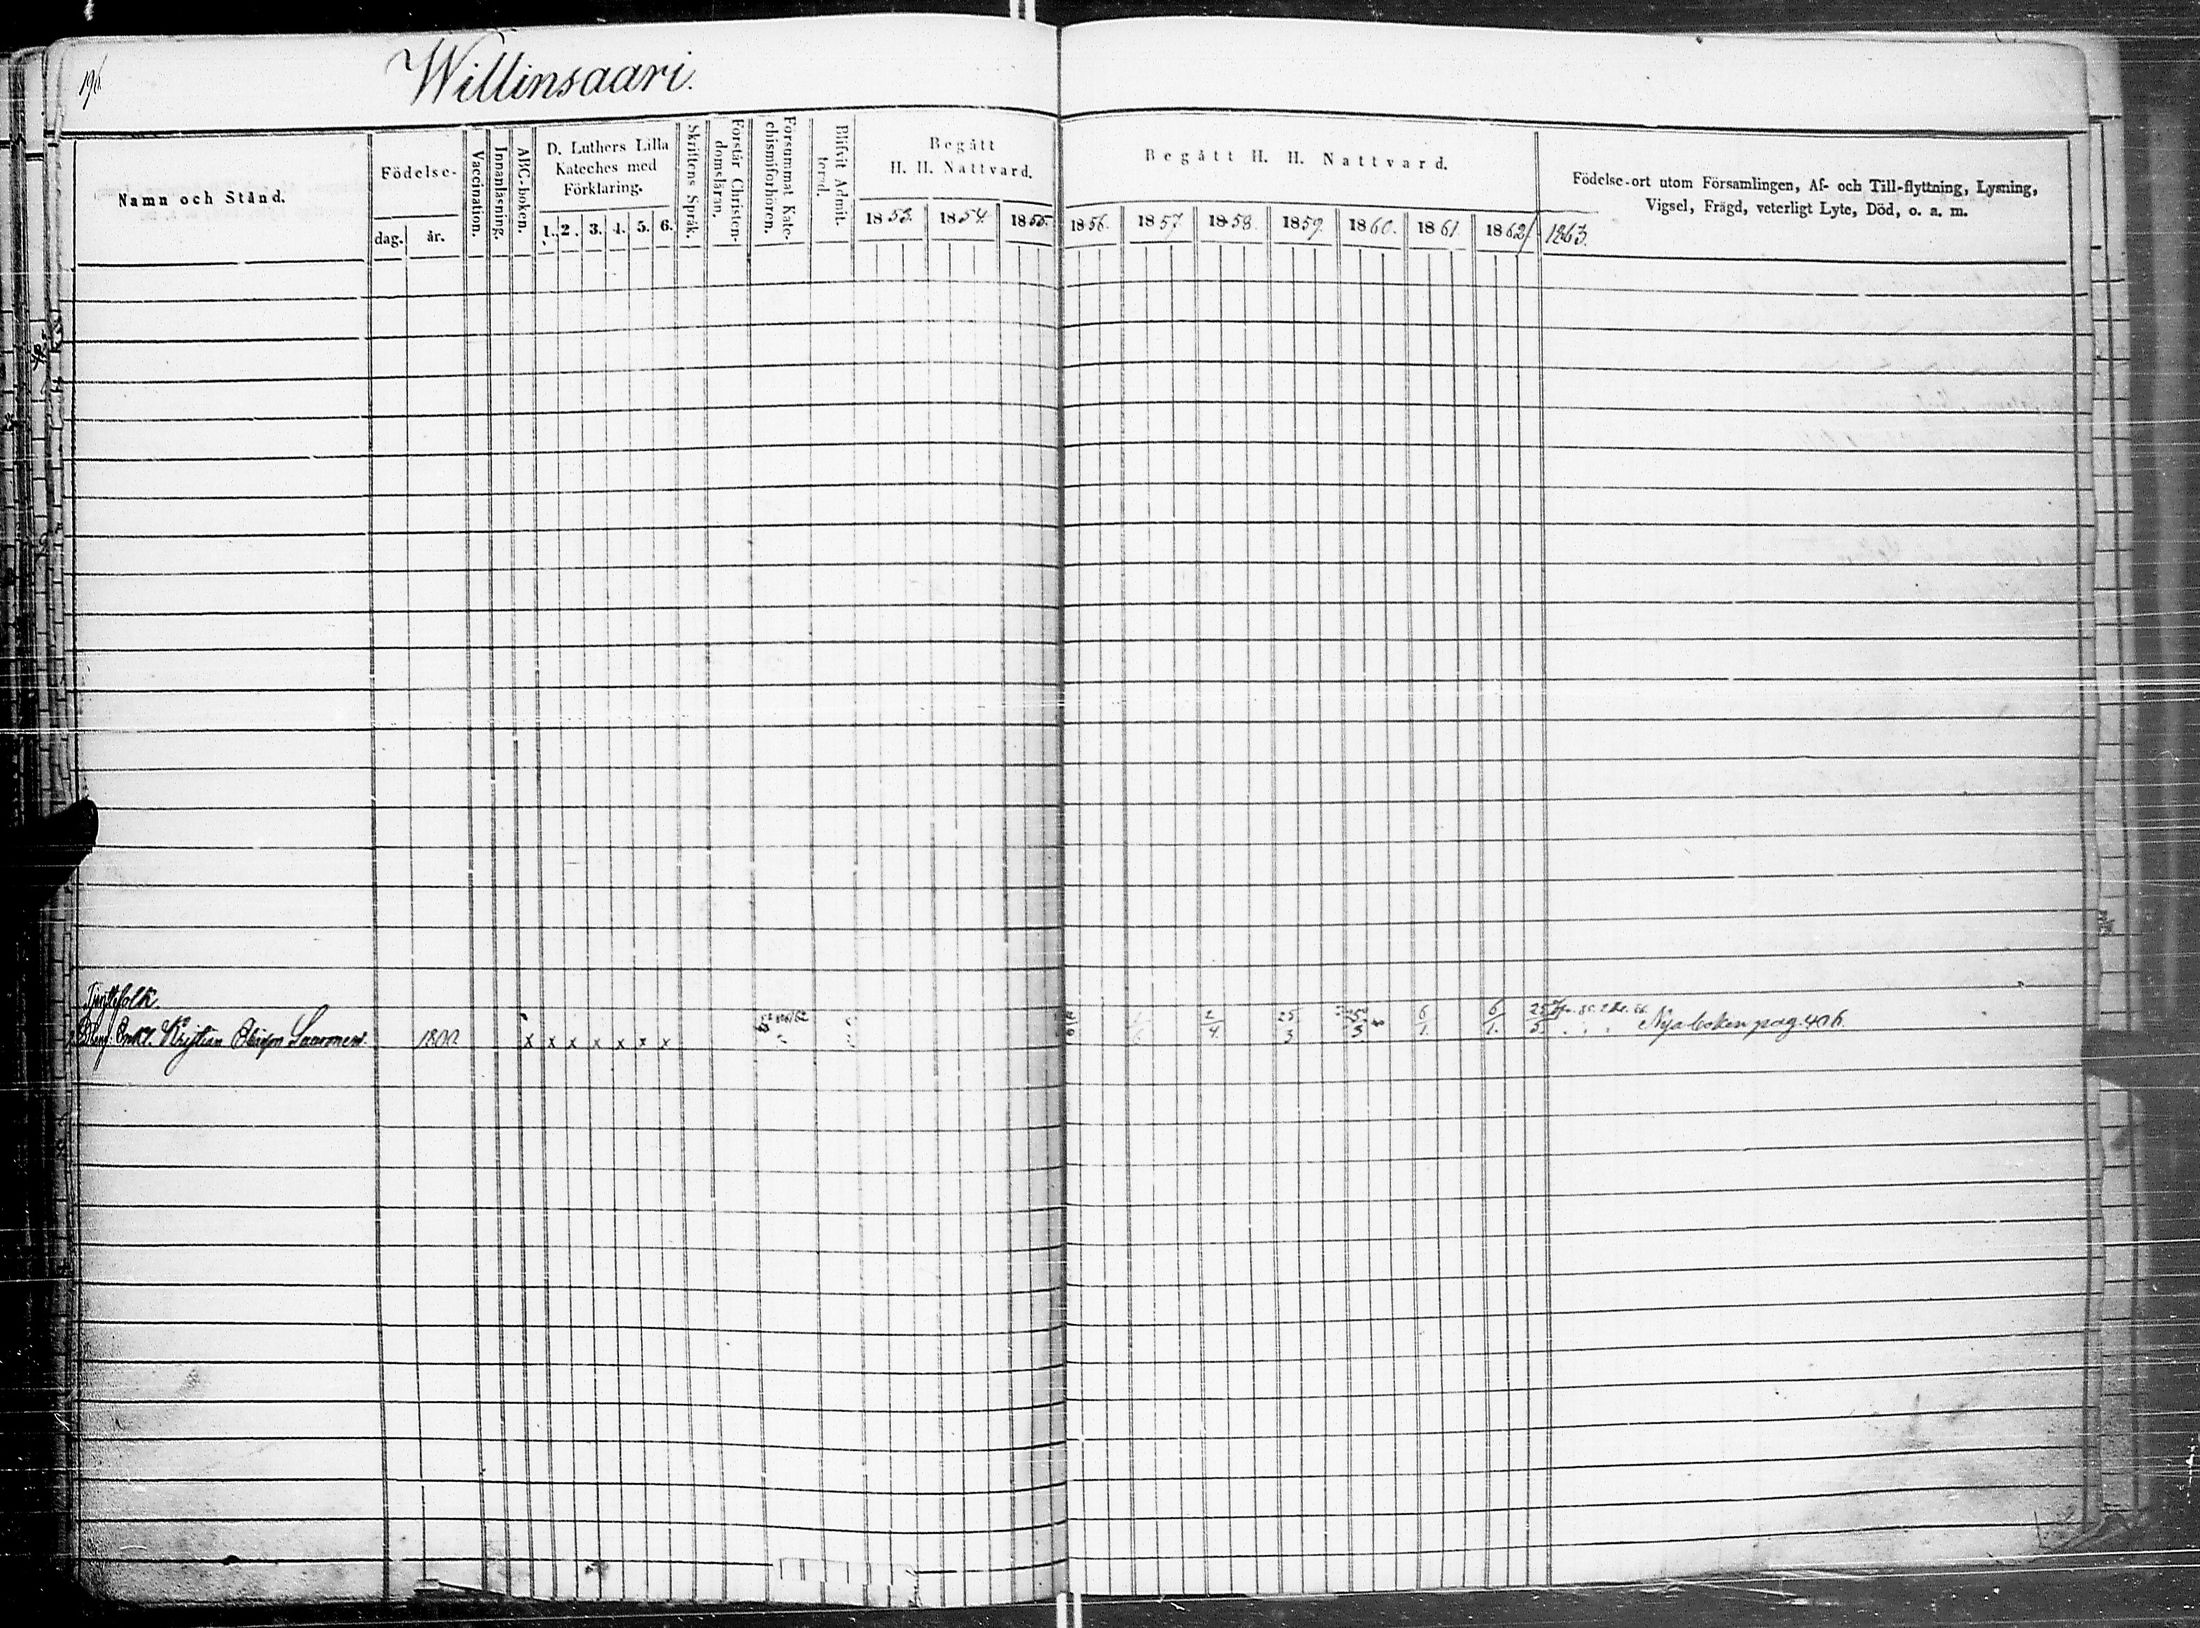 196.
Willinsaari.
Namn och Stånd.
Födelse-
dag. år.
Vaccination.
Innanläsning.
ABC-boken.
D. Luthers Lilla
Kateches med
Förklaring.
1. 2. 3. 4. 5. 6.
Skriftens Språk.
Förstår Christen-
domsläran.
Försummat Kate-
chismiförhören.
Blifvit Admit-
terad.
Begått
H. H. Nattvard.
1853. 1854. 1855.
Begått H. H. Nattvard.
1856. 1857. 1858. 1859. 1860. 1861. 1862.
1863.
Födelse-ort utom Församlingen, Af- och Till-flyttning, Lysning,
Vigsel, Frägd, veterligt Lyte, Död, o. a. m.
Tjenstefolk.
Enkl. Kristian Saarinen. 1800 x x x x x x x 2/4. 25/3 25/3 6/1. 6/1. 25/3. Nya boken pag. 406.